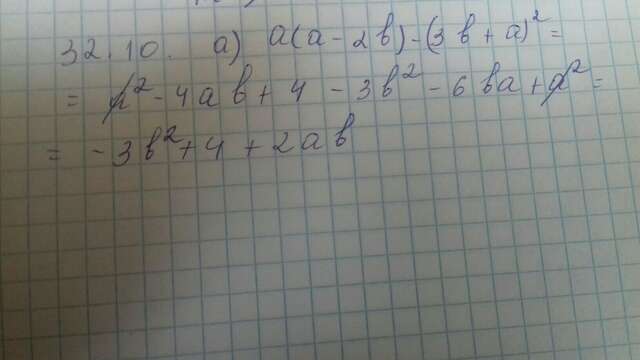 32.10. а) a(a-2b)-(3b+a)²=
= a²-4ab+4-3b²-6ba+a²=
= -3b²+4+2ab